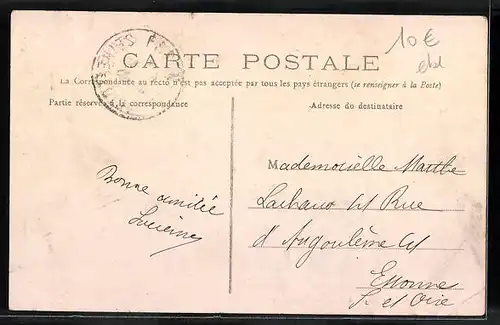 10€
CARTE POSTALE
La Correspondance au recto n'est pas acceptée par tous les pays étrangers (se renseigner à la Poste)
Partie réservée à la correspondance
Adresse du destinataire
Bonne amitié
Lucienne
Mademoiselle Marthe
Rue
d'Angoulême
Essonne
S. et Oise